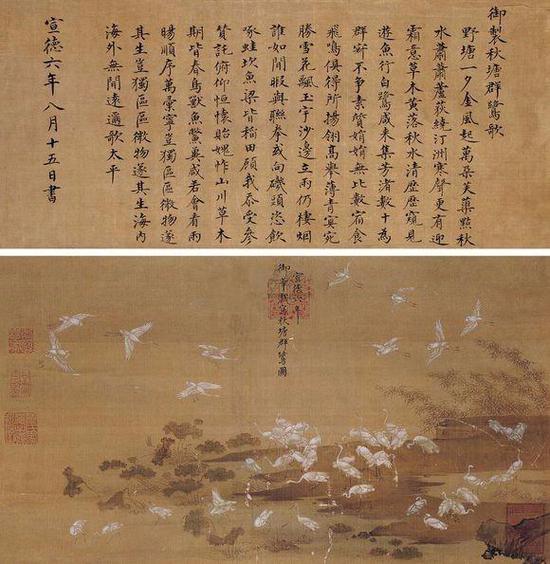 御製秋塘群鷺歌
野塘一夕金風起萬朵芙蕖點秋
水蕭蕭蘆荻繞汀洲寒聲更有迎
霜意草木黃落秋水清歷歷窺見
遊魚行白鷺咸來集芳渚數十為
群寧不爭素質娟娟無比數宿食
飛鳴俱得所揚翎高舉薄青冥宛
勝雪花飄玉宇沙邊立雨仍棲烟
誰如閒暇與聯拳或向磯頭恣飲
啄蛙坎魚梁皆稻田顧我忝受參
贊託俯仰恒懷貽愧怍山川草木
期皆春鳥獸魚鱉奠咸若會看雨
暘順序萬彙寧豈獨區區微物遂
其生豈獨區區微物遂其生海內
海外無間遠邇歌太平
宣德六年八月十五日書
宣德六年
御筆戲寫秋塘群鷺圖